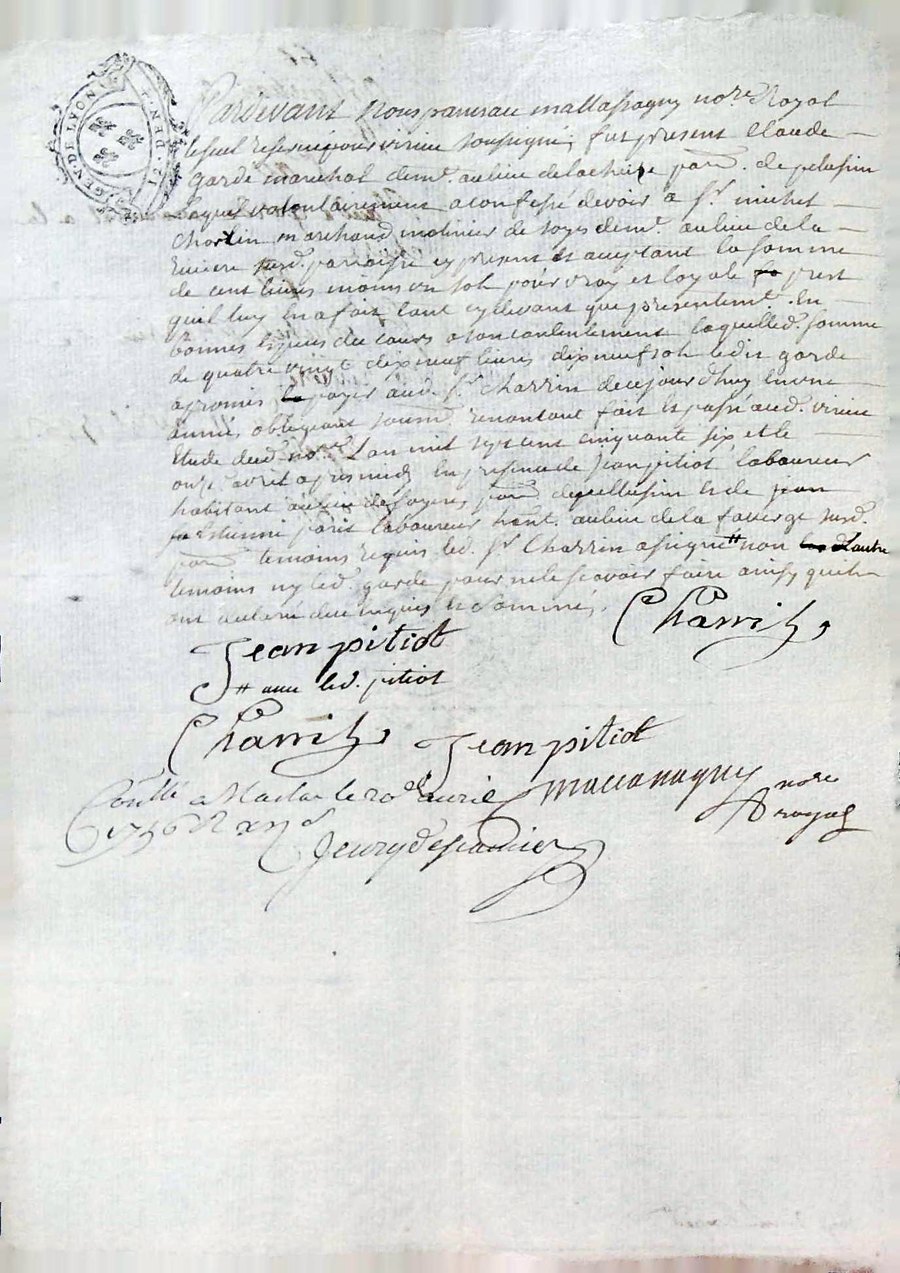 GEN · DE LYON
P · DEN · I
Pardevant nous no.re Royal
lequel reservé pour virieu soussigné, fut present Claude
garde marechal dem.t au lieu de lachaize par.d de pelussin
Lequel volontairement a confessé devoir à S.r michel
Charrin marchand molinier de soyes dem.t au lieu de la
susd. parroisse cy present et aceptant la somme
de cent livres moins un sol pour vray et loyale prest
quil luy en a fait tant cy devant que presentem.t en
bonnes especes du cours a son contentement laquelle d. somme
de quatre vingt dix neuf livres dix neuf sols ledit garde
a promis payer aud. S.r Charrin de ce jourdhuy en une
année, obligeant soum.t renonçant fait et passé aud. virieu
Etude dud. no.re Lan mil sept cent cinquante six, et le
onze avril apres midy en presence de Jean pitiot laboureur
habitant au lieu de par.d de pellussin et de jean
laboureur hant. au lieu de la faverge susd.
par.d temoins requis led. S.r Charrin a signé # non Lautre
temoins ny led. garde pour ne le sçavoir faire ainsy quils
ont declaré de ce requis et sommés.
Charrin
Jean pitiot
# avec led. pitiot
Charrin Jean pitiot
Con.llé a Maclas le 20.e avril
no.re
royal
1756 R